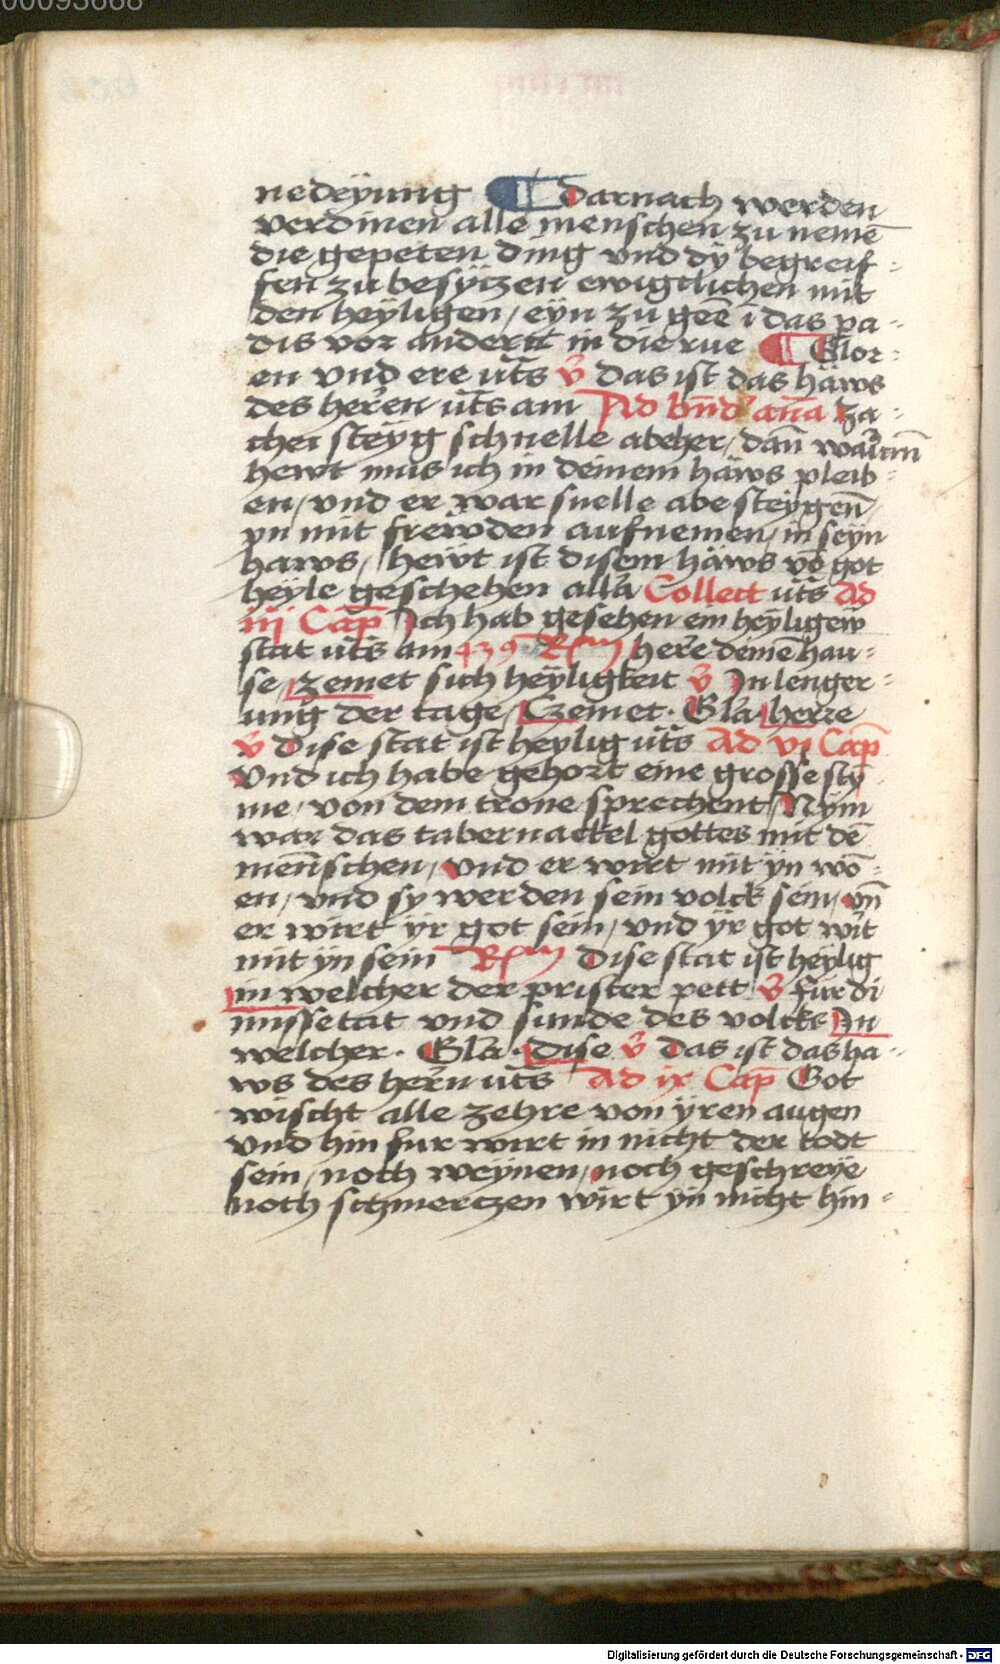 00093668
nedeÿung ¶ Darnach werden
verdinen alle menschen zu nemē
die gepeten ding vnd dÿ begreif-
fen zu besÿtzen ewigclichen mit
den heÿligen / eÿn zu geē i das pa-
dis vor andern in die rue ¶ Glor-
en vnd ere ut̄s v̄ das ist das häws
des herren ut̄s am Ad bn̄d' an̄a za-
chei steÿg schnelle abeher / dan̄
hewt mus ich in deinem häws pleib-
en / vnd er war snelle abe steÿgen̄
yn mit frewden aufnemen / in seÿn
haws / heẅt ist disem häws vō got
heÿle geschehen all'a Collect ut̄s Ad
iij Cap̄ Ich hab gesehen ein heÿligew
stat ut̄s am R herre deinē hau-
se zemet sich heÿligkeit v̄ In lenger-
ung der tage / Czemet · Gl'a herre
v̄ Dise stat ist heylig ut̄s Ad vi Cap̄
Vnd ich habe gehort eine grosse stÿ
me / von dem trone sprechent / Nÿm
war das tabernackel gottes mit dē
men̄schen / vnd er wirt mit ÿn wō-
en / vnd sy werden sein volck sein / vn̄
er wirt ÿr got sein / vnd ÿr got wir̄t
mit ÿn sein R Dise stat ist heÿlig
in welcher der prister pett v̄ für di
missetat vnd sunde des volcks In
welcher · Gl'a · dise v̄ Das ist das ha-
ws des herrn ut̄s Ad ix Cap̄ Got
wischt alle zehre von ÿren augen
vnd hin fur wirt in nicht der todt
sein / noch weÿnen / noch geschreÿe
noch schmerczen wirt ÿn nicht hin-
Digitalisierung gefördert durch die Deutsche Forschungsgemeinschaft - DFG